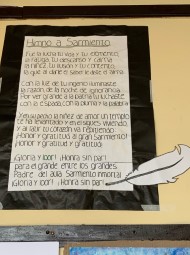 Himno a Sarmiento
Fue la lucha tu vida y tu elemento,
la fatiga, tu descanso y calma
la niñez, tu ilusión y tu contento,
la que al darle el saber le diste el alma.
Con la luz de tu ingenio iluminaste
la razón, de la noche de ignorancia
Por ver grande a la patria tu luchaste
con la espada, con la pluma y la palabra
En su pecho la niñez de amor un templo
te ha levantado y en el sigues viviendo
y al latir su corazón va repitiendo:
¡Honor y gratitud al gran Sarmiento!
¡Honor y gratitud y gratitud!
¡Gloria y loor! ¡Honra sin par!
para el grande entre los grandes
Padre del aula Sarmiento inmortal
¡Gloria y loor! ¡Honra sin par!